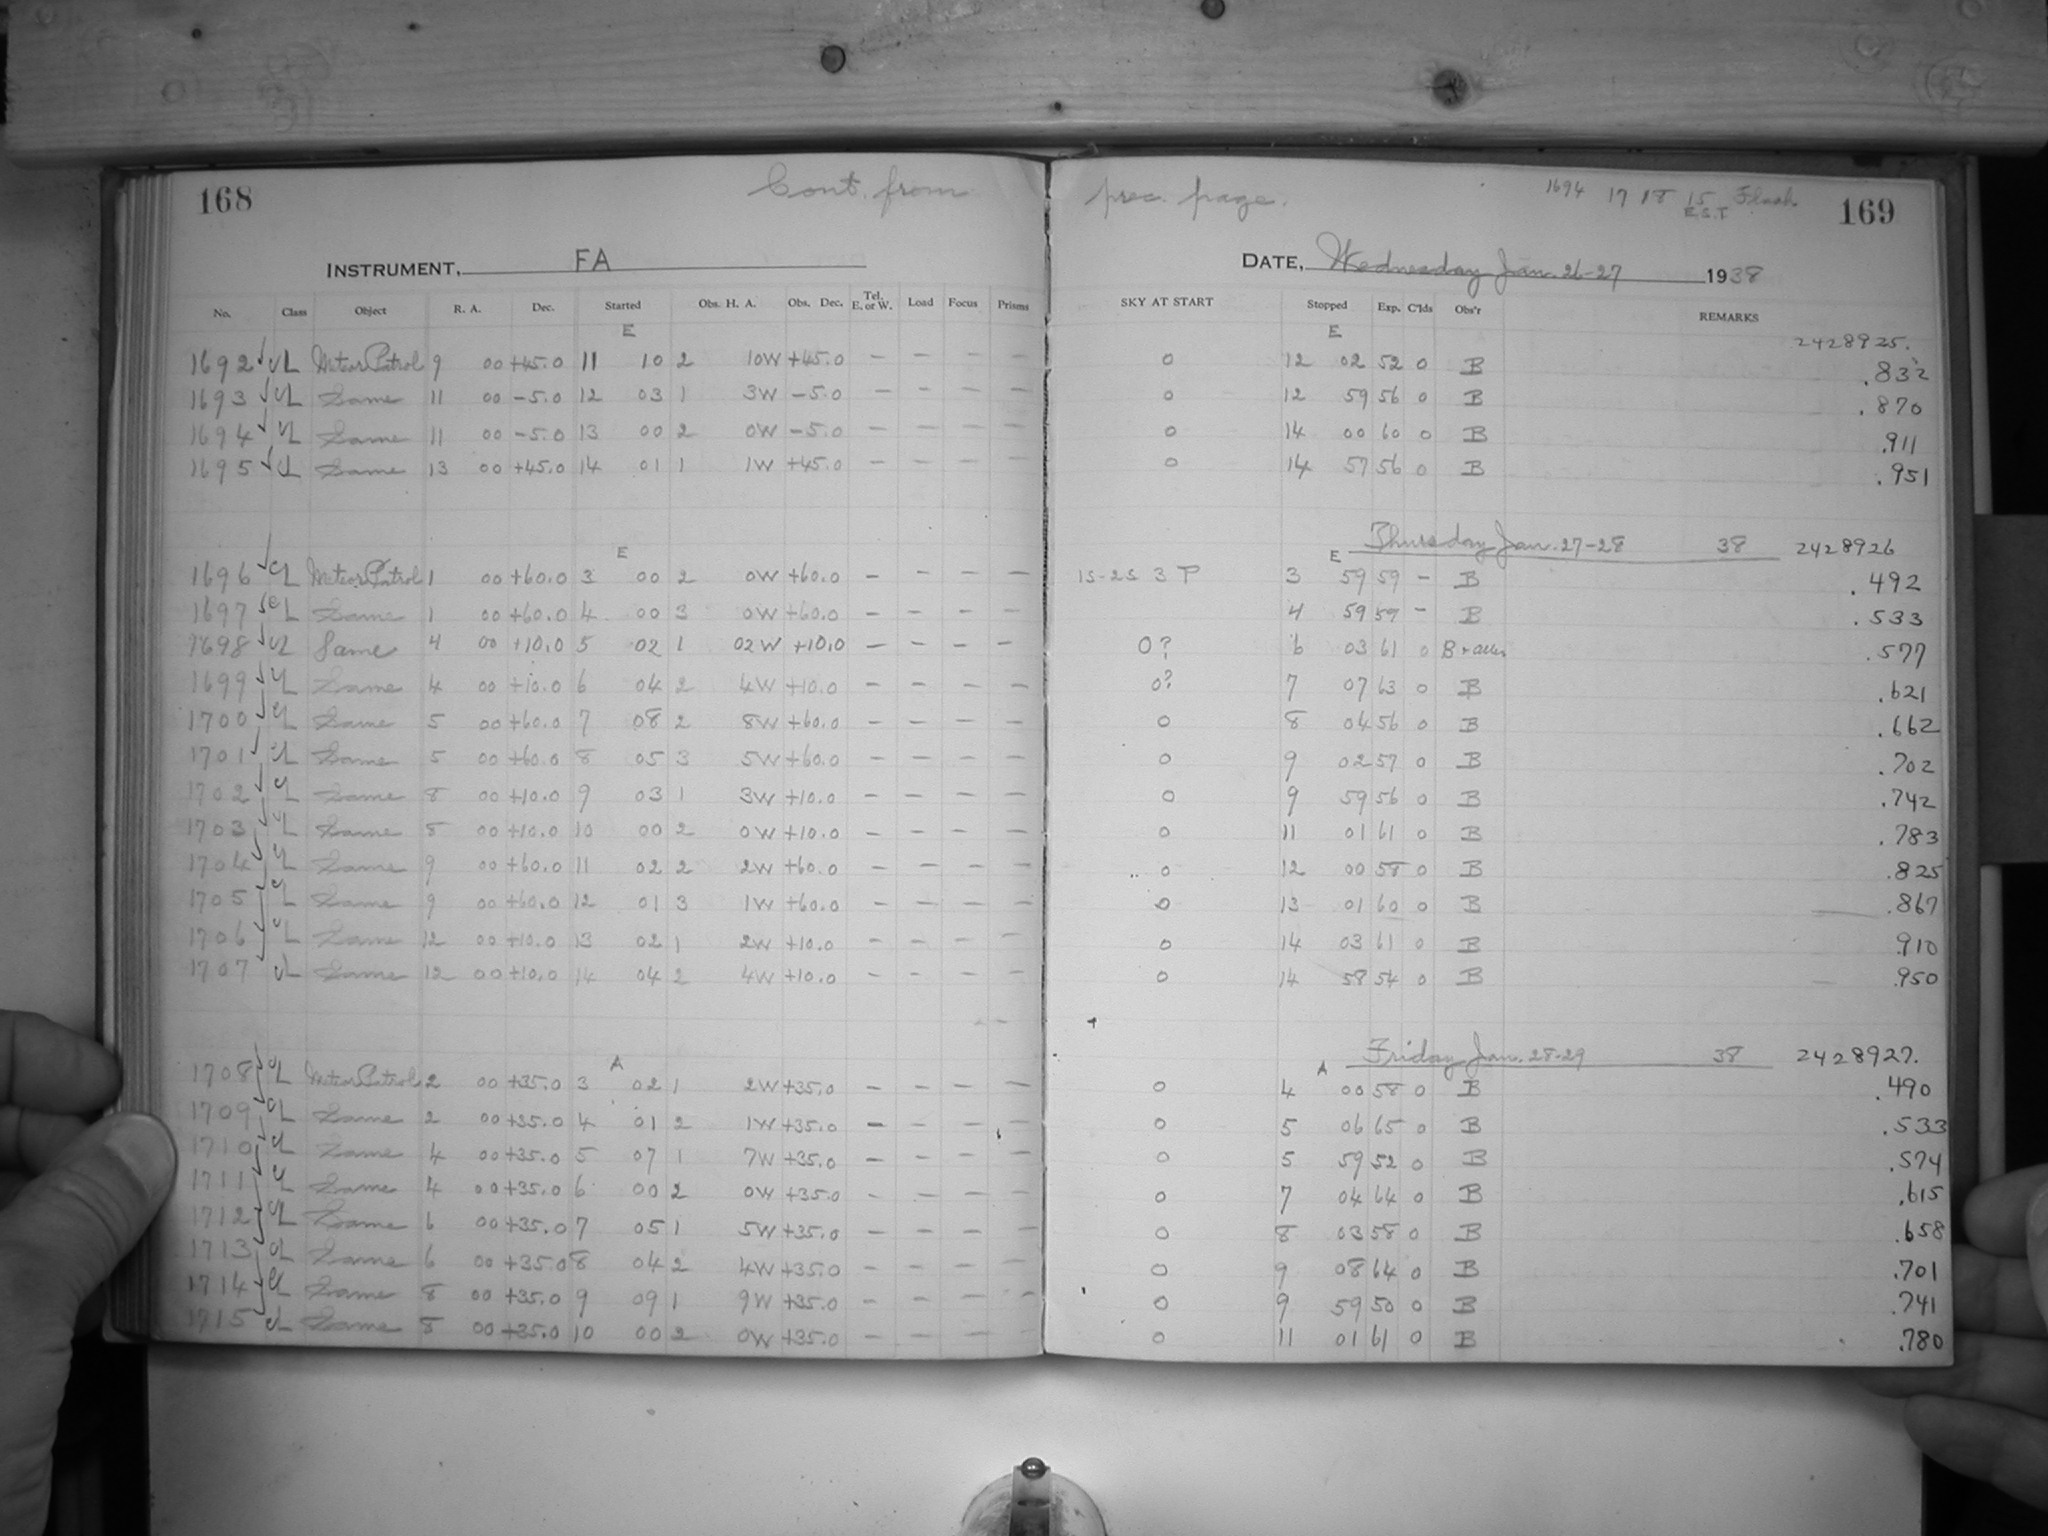 168 Cont. from prec. page. 1694 17 18 15 Flash 169
E.S.T
INSTRUMENT, FA DATE, Wednesday Jan. 26-27 1938
No. Class Object R. A. Dec. Started Obs. H. A. Obs. Dec. Tel. E. or W. Load Focus Prisms SKY AT START Stopped Exp. C'lds Obs'r REMARKS
E E 2428925.
1692 L Meteor Patrol 9 00 +45.0 11 10 2 10W +45.0 — — — — 0 12 02 52 0 B .832
1693 L Same 11 00 -5.0 12 03 1 3W -5.0 — — — — 0 12 59 56 0 B .870
1694 L Same 11 00 -5.0 13 00 2 0W -5.0 — — — — 0 14 00 60 0 B .911
1695 L Same 13 00 +45.0 14 01 1 1W +45.0 — — — — 0 14 57 56 0 B .951
E E Thursday Jan. 27-28 38 2428926
1696 L Meteor Patrol 1 00 +60.0 3 00 2 0W +60.0 — — — — 15-25 3 P 3 59 59 — B .492
1697 L Same 1 00 +60.0 4 00 3 0W +60.0 — — — — 4 59 59 — B .533
1698 L Same 4 00 +10.0 5 02 1 02W +10.0 — — — — 0? 6 03 61 0 B + .577
1699 L Same 4 00 +10.0 6 04 2 4W +10.0 — — — — 0? 7 07 63 0 B .621
1700 L Same 5 00 +60.0 7 08 2 8W +60.0 — — — — 0 8 04 56 0 B .662
1701 L Same 5 00 +60.0 8 05 3 5W +60.0 — — — — 0 9 02 57 0 B .702
1702 L Same 8 00 +10.0 9 03 1 3W +10.0 — — — — 0 9 59 56 0 B .742
1703 L Same 8 00 +10.0 10 00 2 0W +10.0 — — — — 0 11 01 61 0 B .783
1704 L Same 9 00 +60.0 11 02 2 2W +60.0 — — — — 0 12 00 58 0 B .825
1705 L Same 9 00 +60.0 12 01 3 1W +60.0 — — — — 0 13 01 60 0 B .867
1706 L Same 12 00 +10.0 13 02 1 2W +10.0 — — — — 0 14 03 61 0 B .910
1707 L Same 12 00 +10.0 14 04 2 4W +10.0 — — — — 0 14 58 54 0 B .950
A A Friday Jan. 28-29 38 2428927.
1708 L Meteor Patrol 2 00 +35.0 3 02 1 2W +35.0 — — — — 0 4 00 58 0 B .490
1709 L Same 2 00 +35.0 4 01 2 1W +35.0 — — — — 0 5 06 65 0 B .533
1710 L Same 4 00 +35.0 5 07 1 7W +35.0 — — — — 0 5 59 52 0 B .574
1711 L Same 4 00 +35.0 6 00 2 0W +35.0 — — — — 0 7 04 64 0 B .615
1712 L Same 6 00 +35.0 7 05 1 5W +35.0 — — — — 0 8 03 58 0 B .658
1713 L Same 6 00 +35.0 8 04 2 4W +35.0 — — — — 0 9 08 64 0 B .701
1714 L Same 8 00 +35.0 9 09 1 9W +35.0 — — — — 0 9 59 50 0 B .741
1715 L Same 8 00 +35.0 10 00 2 0W +35.0 — — — — 0 11 01 61 0 B .780